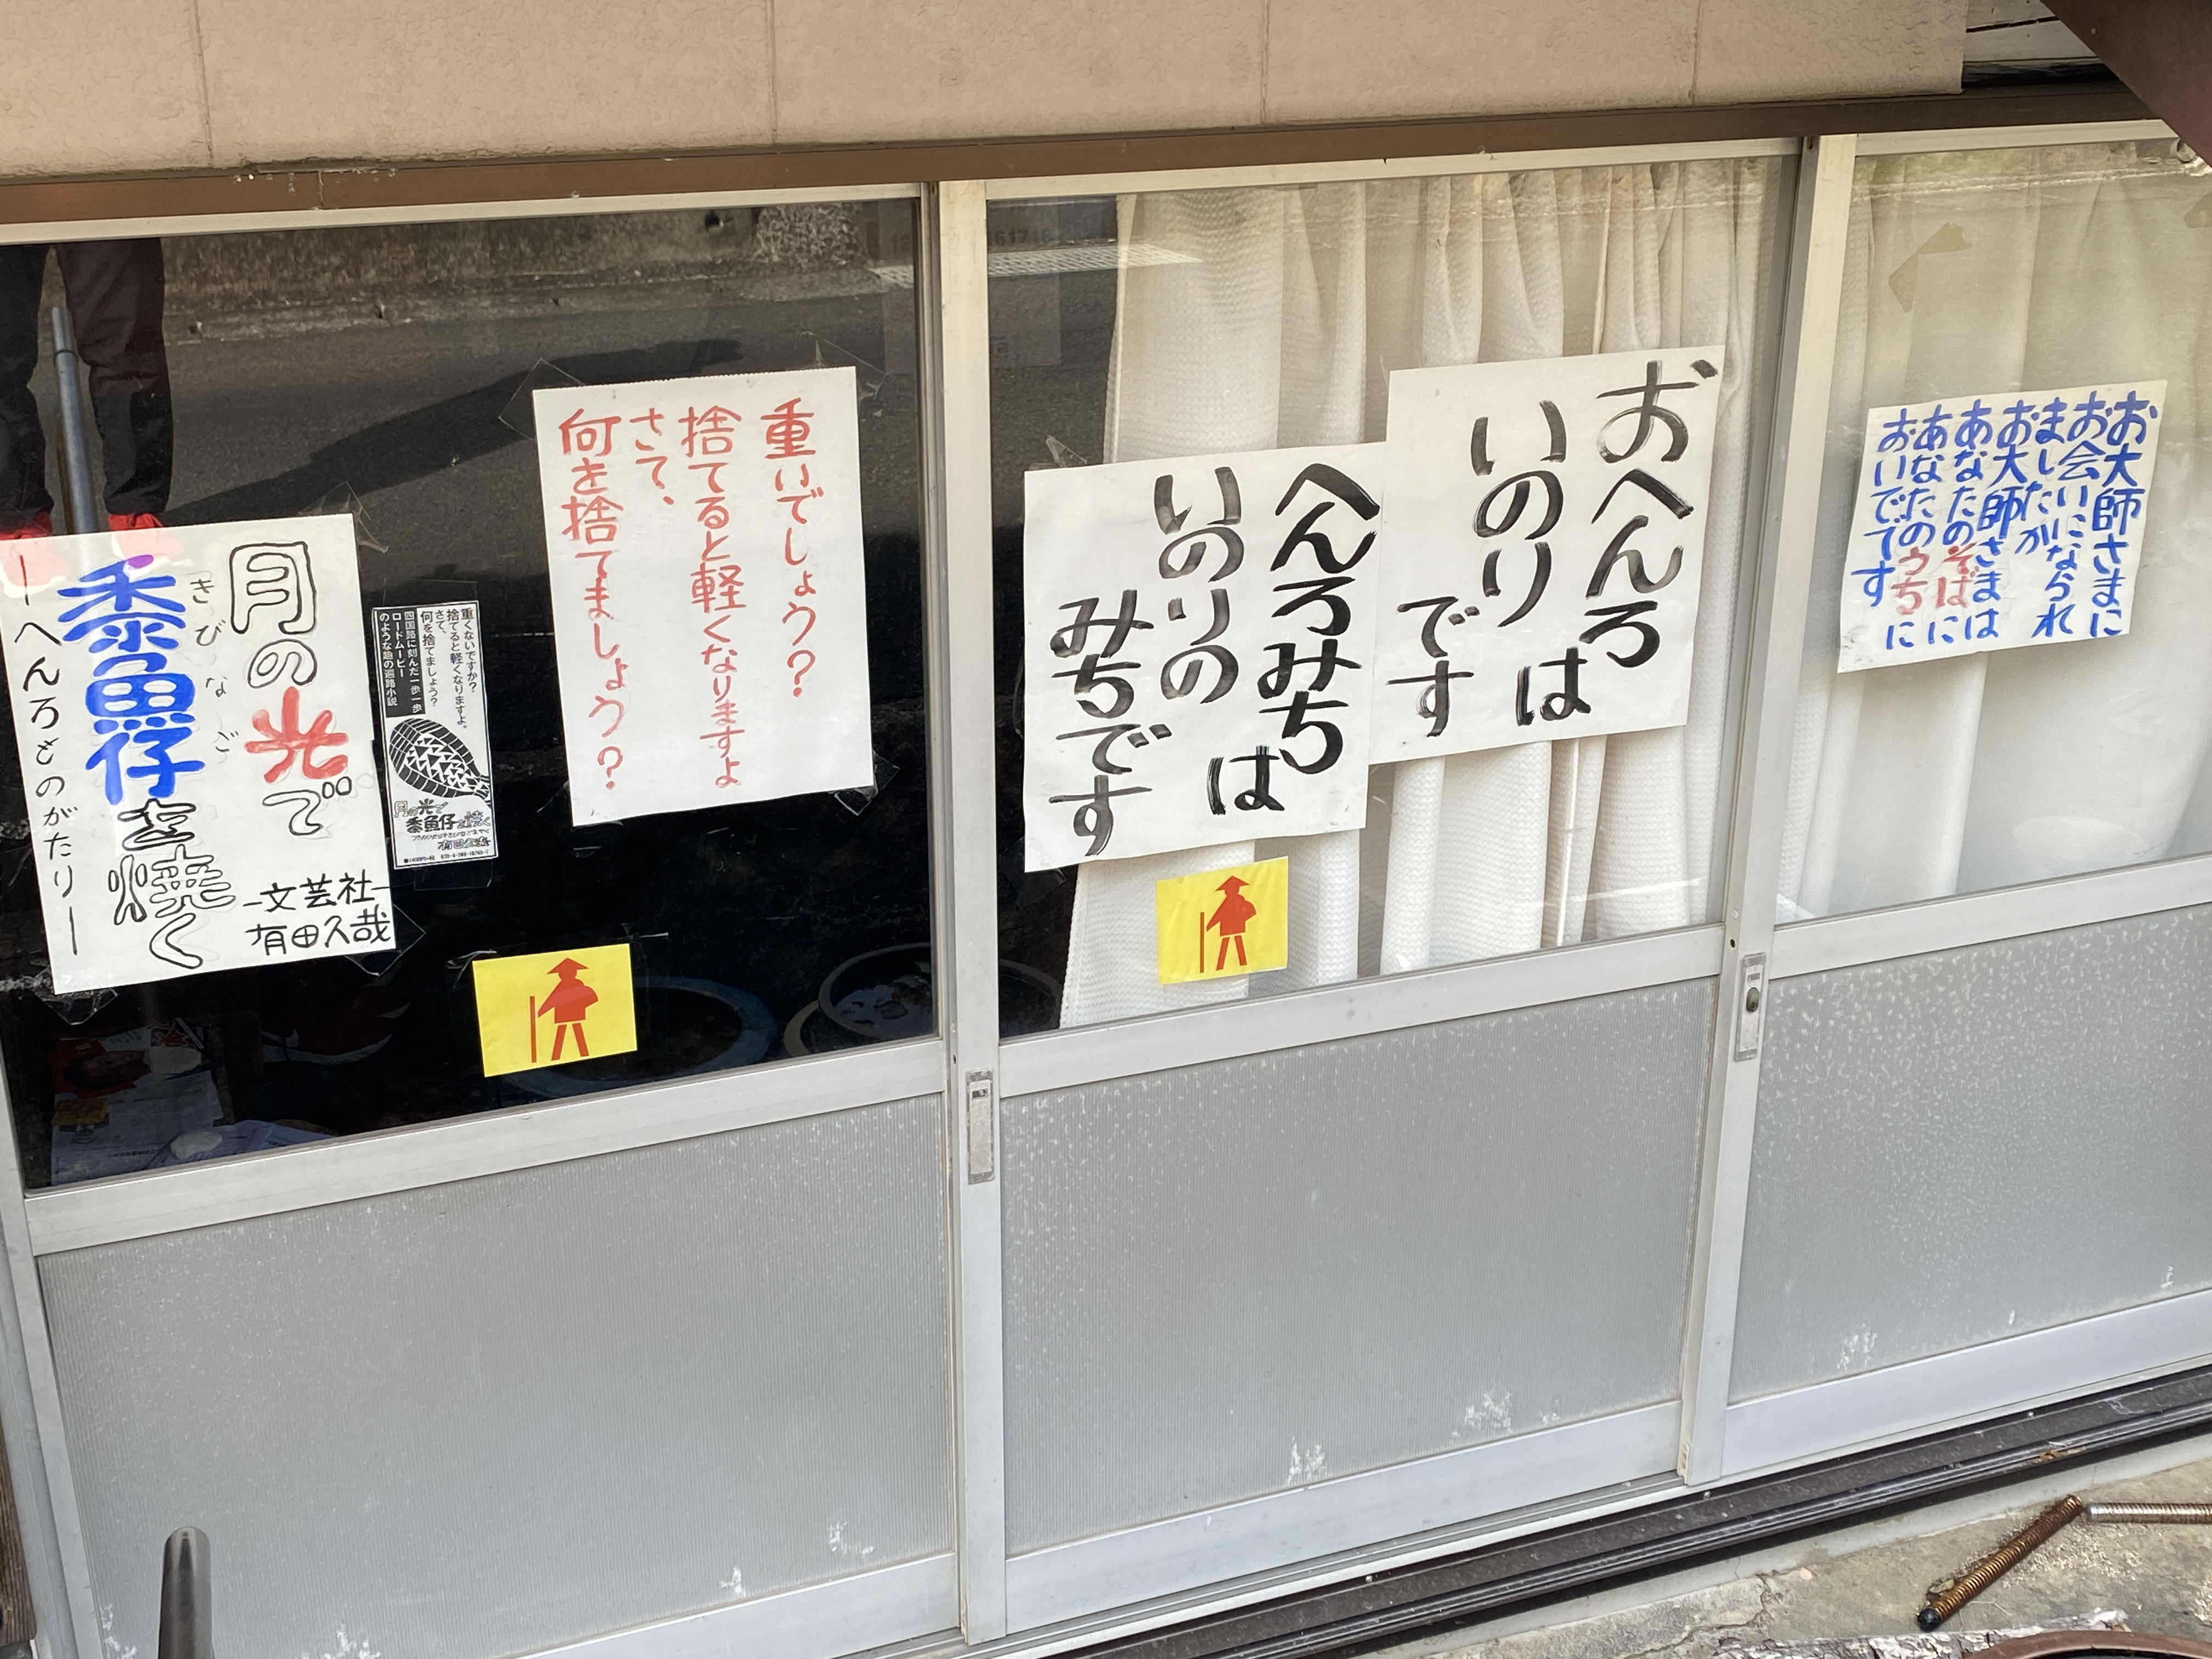 お大師さまに
お会いになられ
ましたか
お大師さまは
あなたのそばに
あなたのうちに
おいでです
おへんろ
いのり は
です
へんろみち は
いのりの
みちです
重いでしょう?
捨てると軽くなりますよ
さて、
何を捨てましょう?
重くないですか?
捨てると軽くなりますよ。
さて、
何を捨てましょう?
四国路に刻んだ一歩一歩
ロードムービー
のような趣の遍路小説
月の光で
黍魚仔を焼く
有田久哉
月の光で
きびなご
黍魚仔を焼く
ーへんろものがたりー
-文芸社-
有田久哉